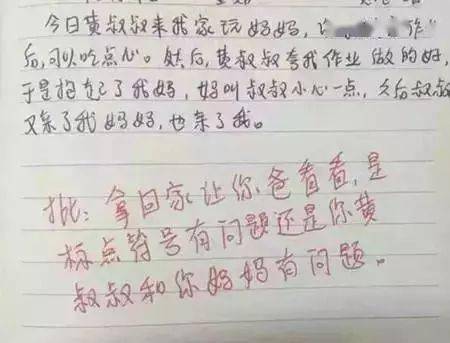 今日黄叔叔来我家玩妈妈，作
后，可以吃点心。然后，黄叔叔夸我作业做的好，
于是抱起了我妈，妈叫叔叔小心一点，之后叔叔
又亲了我妈妈，也亲了我。
批：拿回家让你爸看看，是
标点符号有问题还是你黄
叔叔和你妈妈有问题。